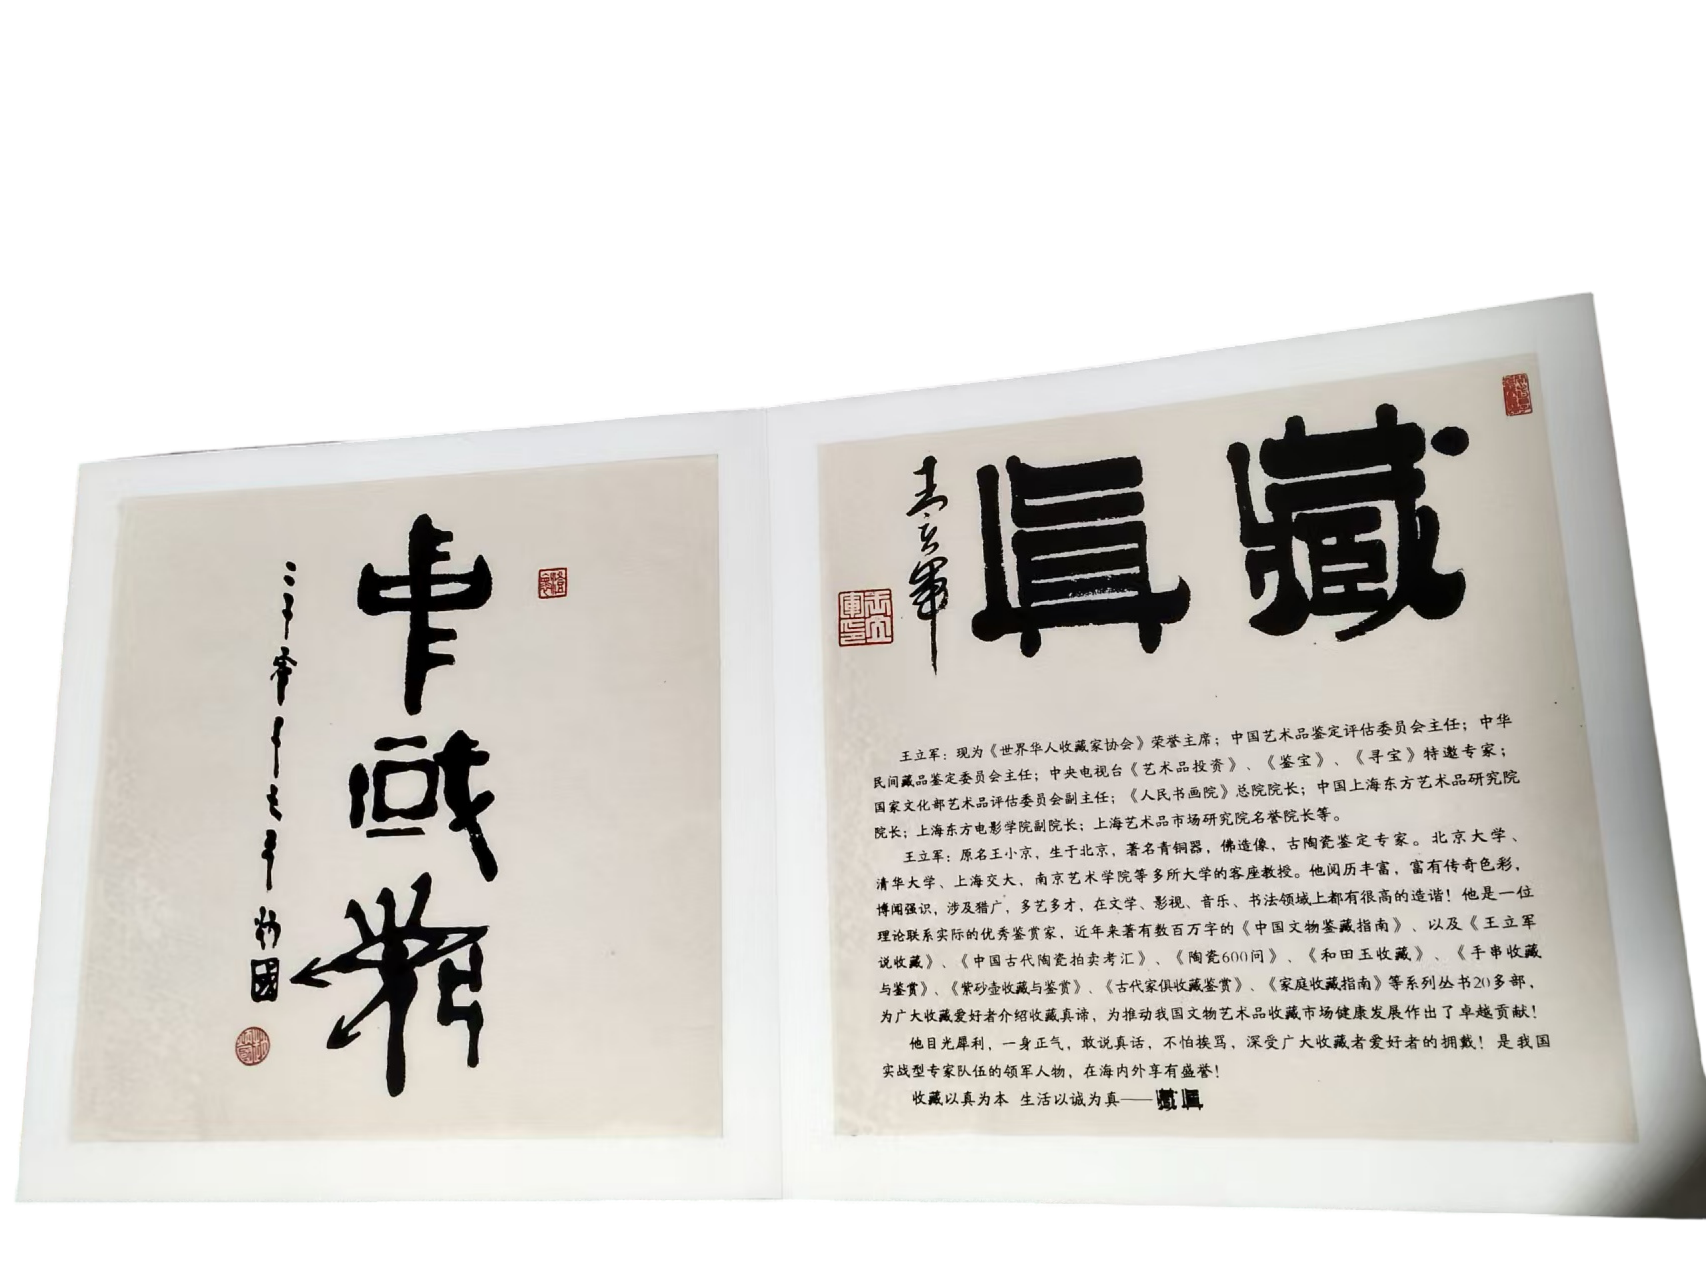 中国梦
国
藏真
王立军
王立军印
王立军：现为《世界华人收藏家协会》荣誉主席；中国艺术品鉴定评估委员会主任；中华
民间藏品鉴定委员会主任；中央电视台《艺术品投资》、《鉴宝》、《寻宝》特邀专家；
国家文化部艺术品评估委员会副主任；《人民书画院》总院院长；中国上海东方艺术品研究院
院长；上海东方电影学院副院长；上海艺术品市场研究院名誉院长等。
王立军：原名王小京，生于北京，著名青铜器，佛造像，古陶瓷鉴定专家。北京大学、
清华大学、上海交大，南京艺术学院等多所大学的客座教授。他阅历丰富，富有传奇色彩，
博闻强识，涉及猎广，多艺多才，在文学、影视、音乐、书法领域上都有很高的造谐！他是一位
理论联系实际的优秀鉴赏家，近年来著有数百万字的《中国文物鉴藏指南》、以及《王立军
说收藏》、《中国古代陶瓷拍卖考汇》、《陶瓷600问》、《和田玉收藏》、《手串收藏
与鉴赏》、《紫砂壶收藏与鉴赏》、《古代家俱收藏鉴赏》、《家庭收藏指南》等系列丛书20多部，
为广大收藏爱好者介绍收藏真谛，为推动我国文物艺术品收藏市场健康发展作出了卓越贡献！
他目光犀利，一身正气，敢说真话，不怕挨骂，深受广大收藏者爱好者的拥戴！是我国
实战型专家队伍的领军人物，在海内外享有盛誉！
收藏以真为本 生活以诚为真——藏真